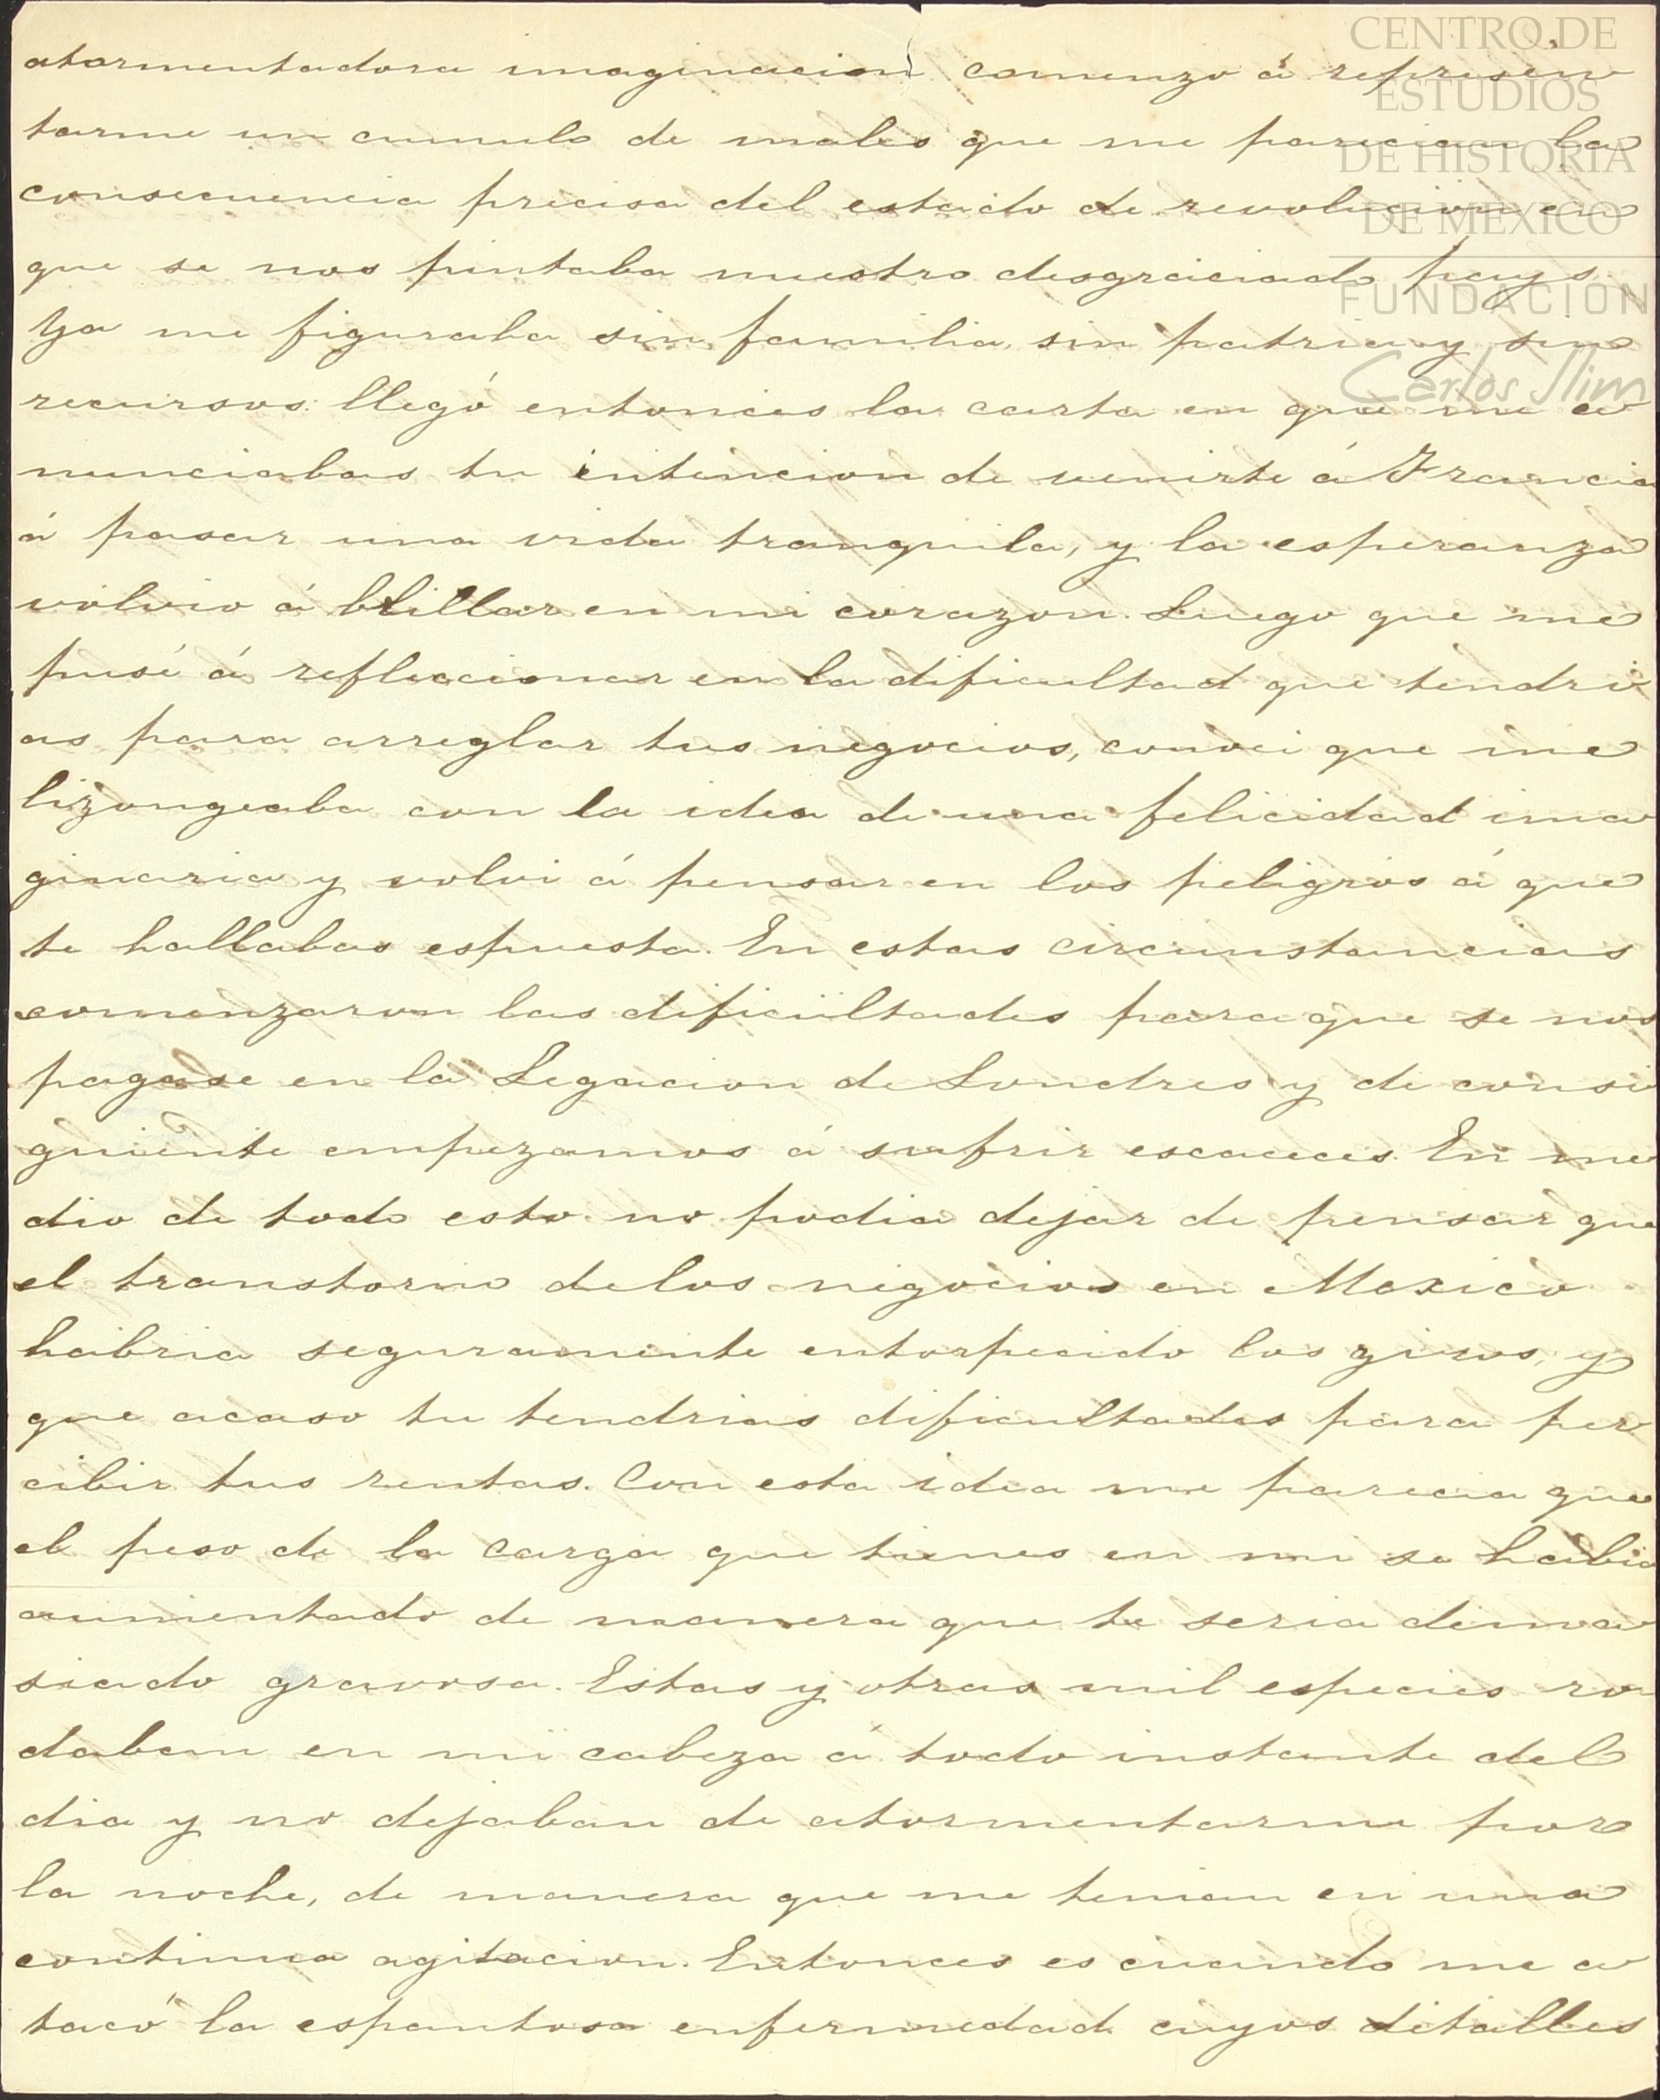 CENTRO DE
ESTUDIOS
DE HISTORIA
DE MEXICO
FUNDACIÓN
Carlos Slim
atormentadora imaginacion comenzo á represen
tarme un cumulo de males que me parecian la
consecuencia precisa del estado de revolucion en
que se nos pintaba nuestro desgraciado pays.
Ya me figuraba sin familia, sin patria y sin
recursos: llegó entonces la carta en que me a
nunciabas tu intencion de venirte á Francia
á pasar una vida tranquila, y la esperanza
volvio á brillar en mi corazon. Luego que me
pusé á refleccionar en la dificultad que tendri
as para arreglar tus negocios, conoci que me
lizongeaba con la idea de una felicidad ima
ginaria y volvi á pensar en los peligros á que
te hallabas espuesta. En estas circunstancias
comenzaron las dificultades para que se nos
pagase en la Legacion de Londres y de consi
guiente empezamos á sufrir escaceces. En me
dio de todo esto no podia dejar de pensar que
el transtorno de los negocios en Mexico
habria seguramente entorpecido los giros, y
que acaso tu tendrias dificultades para per
cibir tus rentas. Con esta idea me parecia que
el peso de la carga que tienes en mi se habia
aumentado de manera que te seria dema
siado gravosa. Estas y otras mil especies ro
daban en mi cabeza á todo instante del
dia y no dejaban de atormentarme por
la noche, de manera que me tenian en una
continua agitacion. Entonces es cuando me a
tacó la espantosa enfermedad cuyos detalles